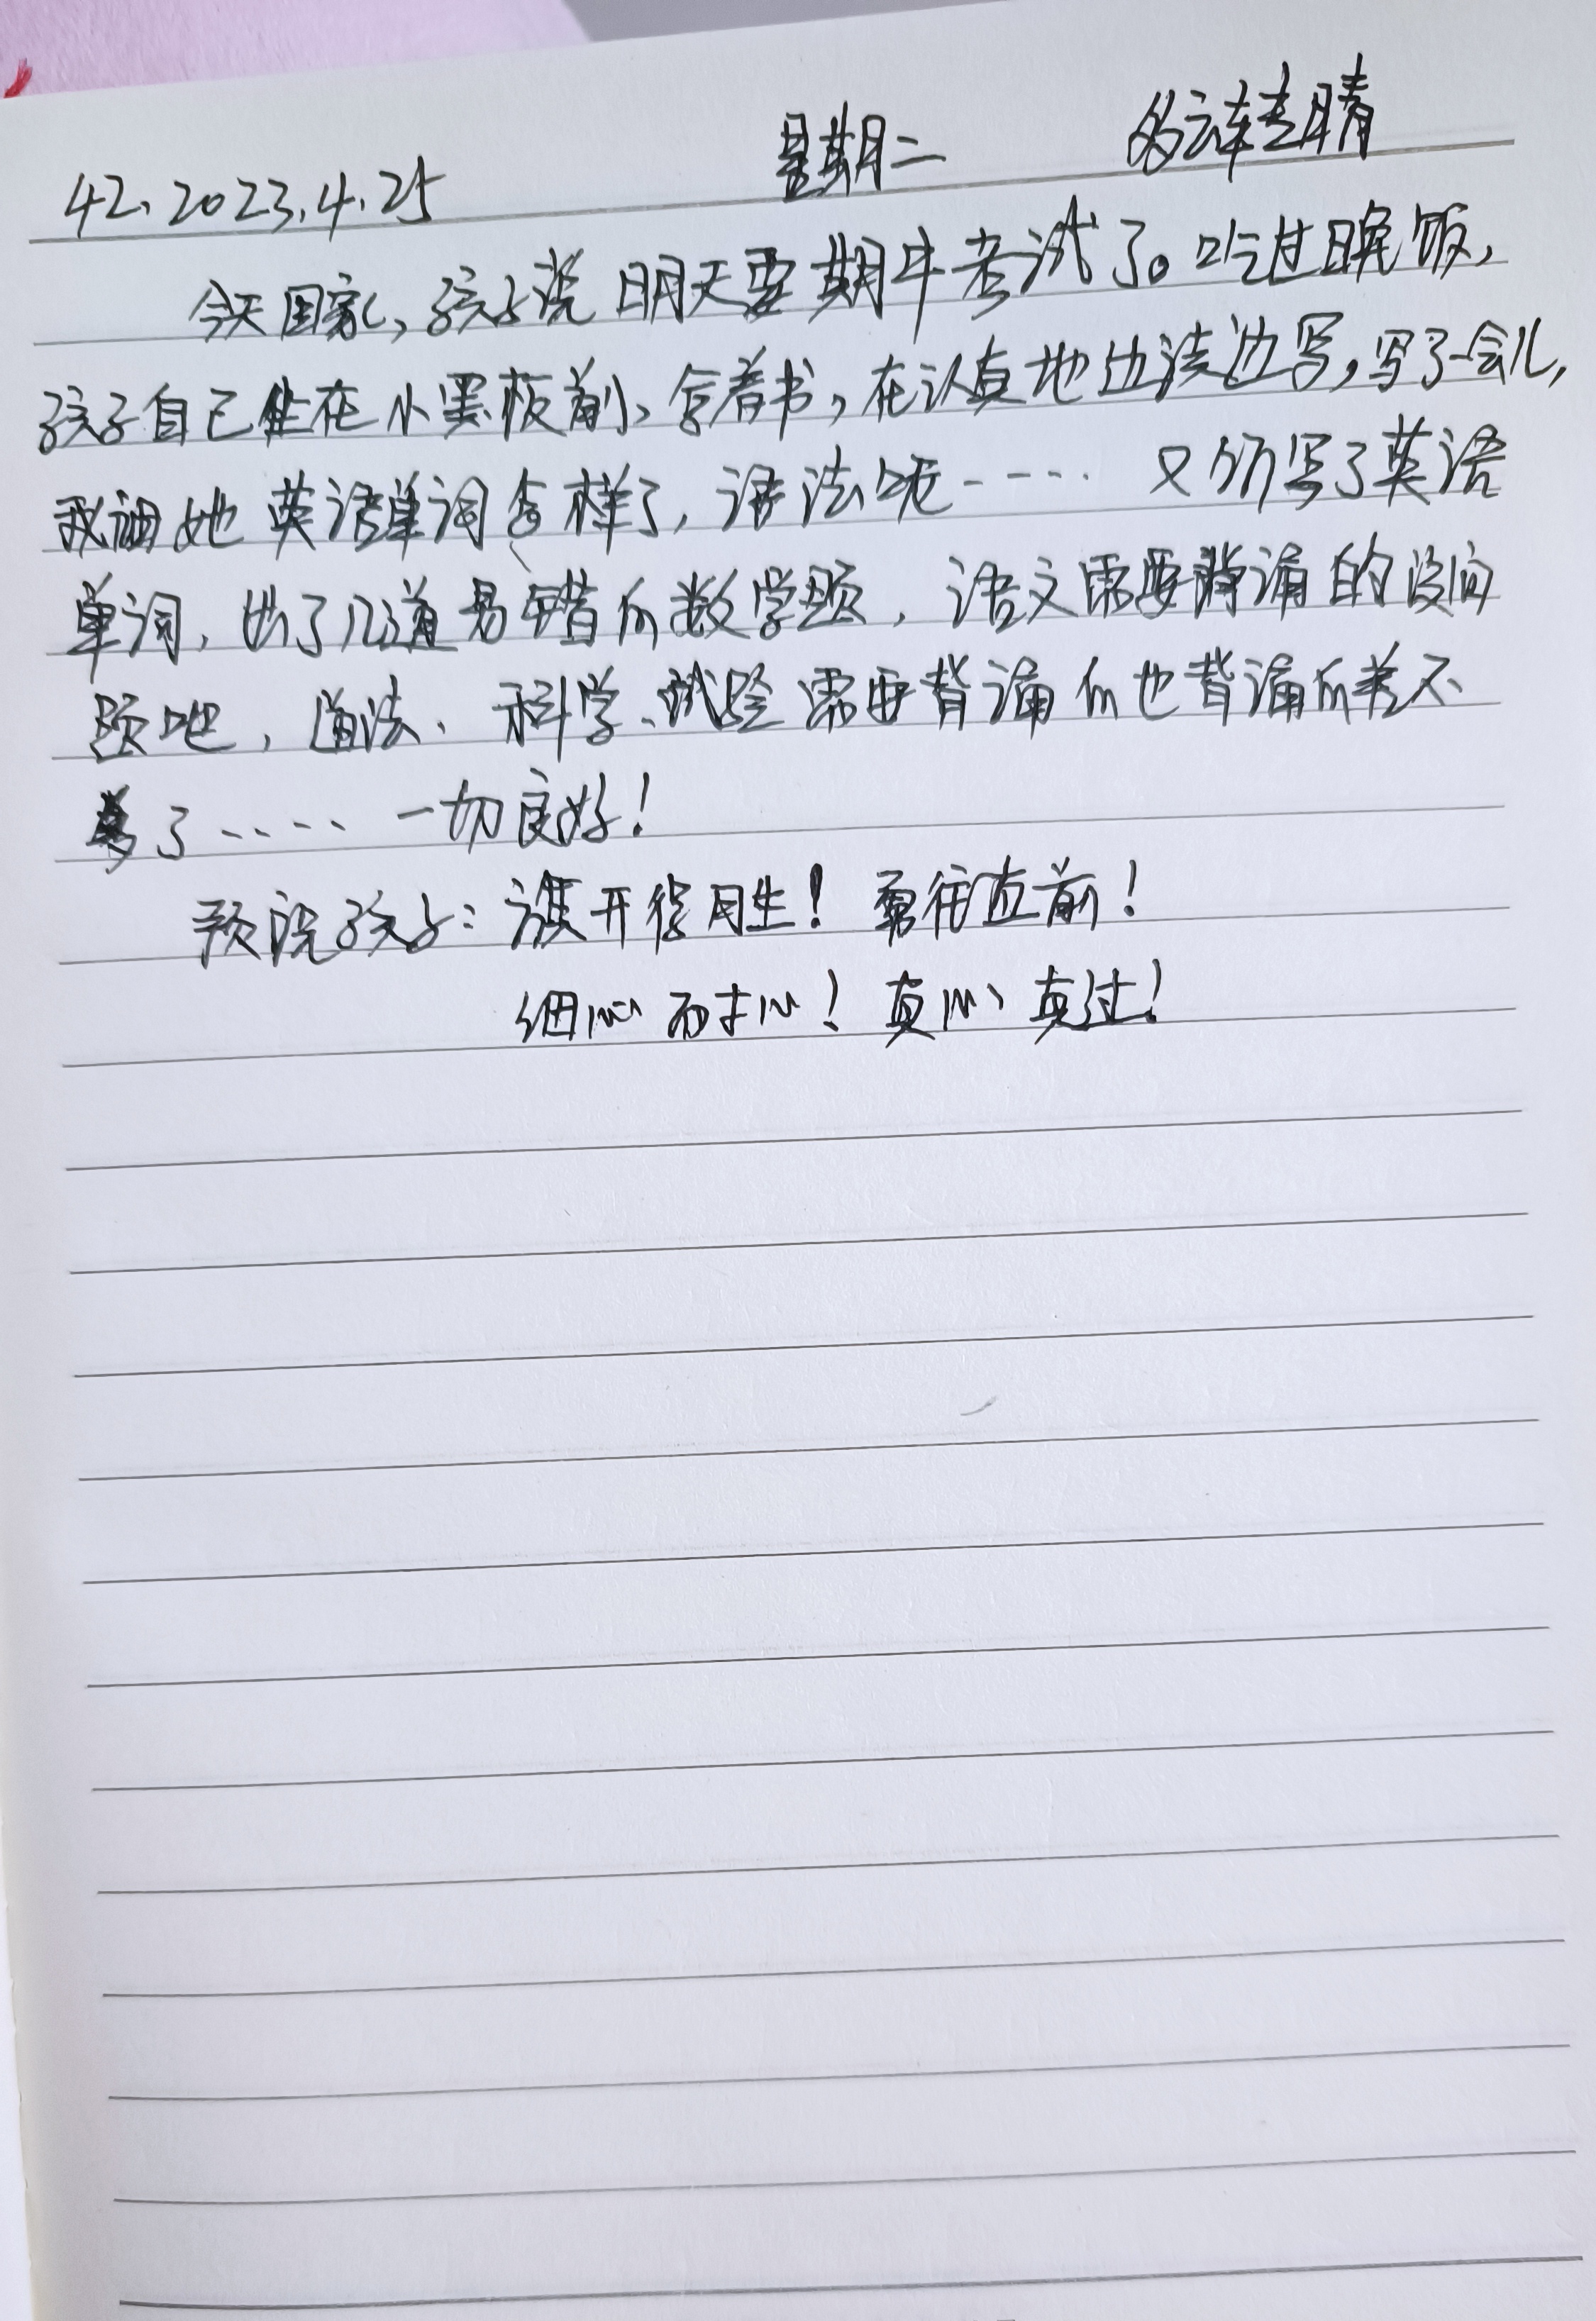 42、2023.4.25 星期二 多云转晴
今天回家,孩子说明天要期中考试了。吃过晚饭,
孩子自己坐在小黑板前,拿着书,在认真地边读边写,写了一会儿,
我问她英语单词怎样了,语法呢…… 又听写了英语
单词,出了几道易错的数学题,语文需要背诵的没问
题吧,道法、科学、试验需要背诵的也背诵的差不
多了…… 一切良好!
预祝孩子:旗开得胜!勇往直前!
细心 耐心!真心